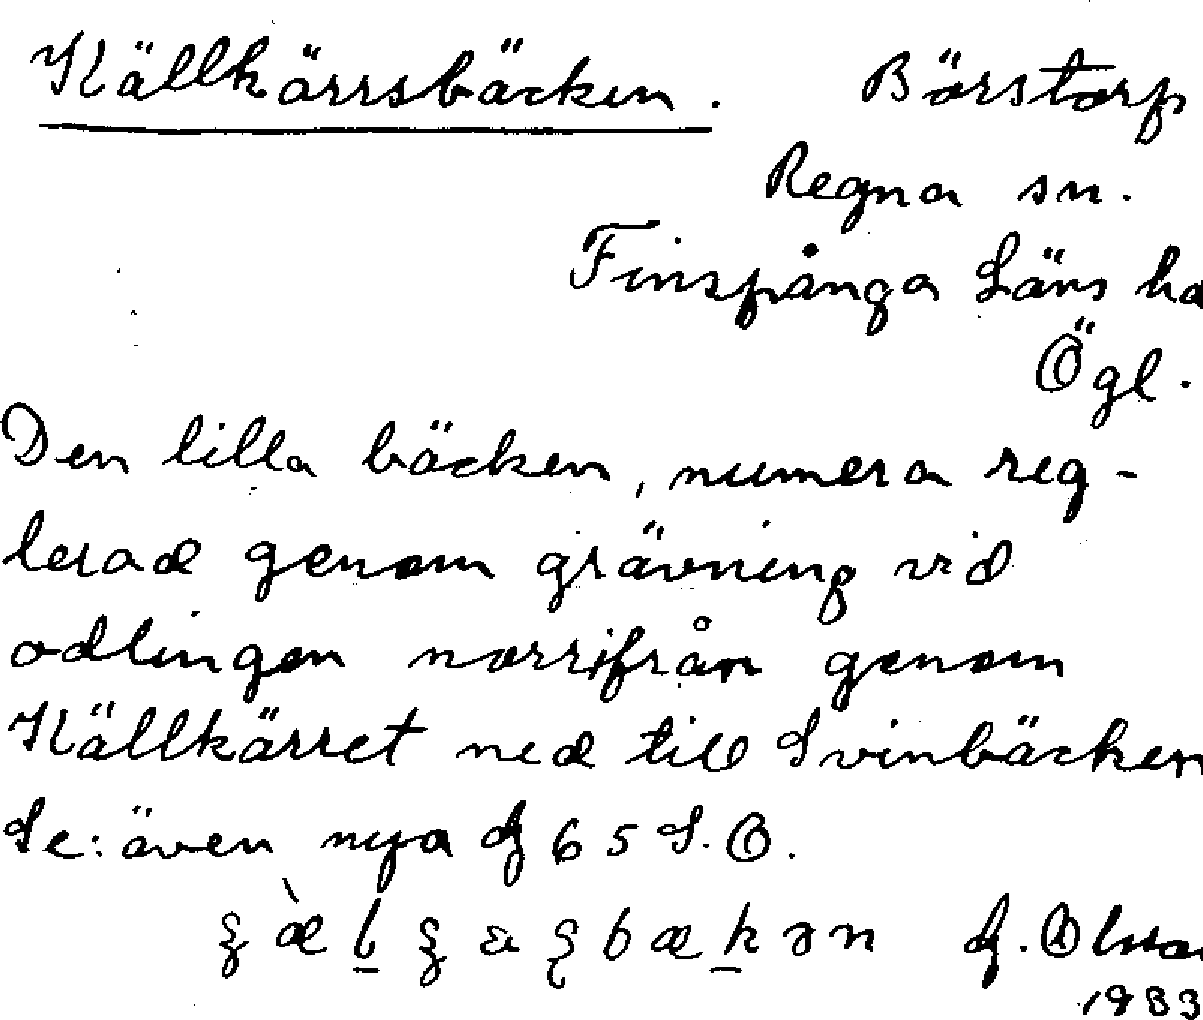 Källkärrsbäcken. Börstorp
Regna sn.
Finspånga Läns hd
Ögl.
Den lilla bäcken, numera reg-
lerad genom grävning vid
odlingen norrifrån genom
Källkärret ned till Svinbäcken
Se: även nya 65 S.O.
1933